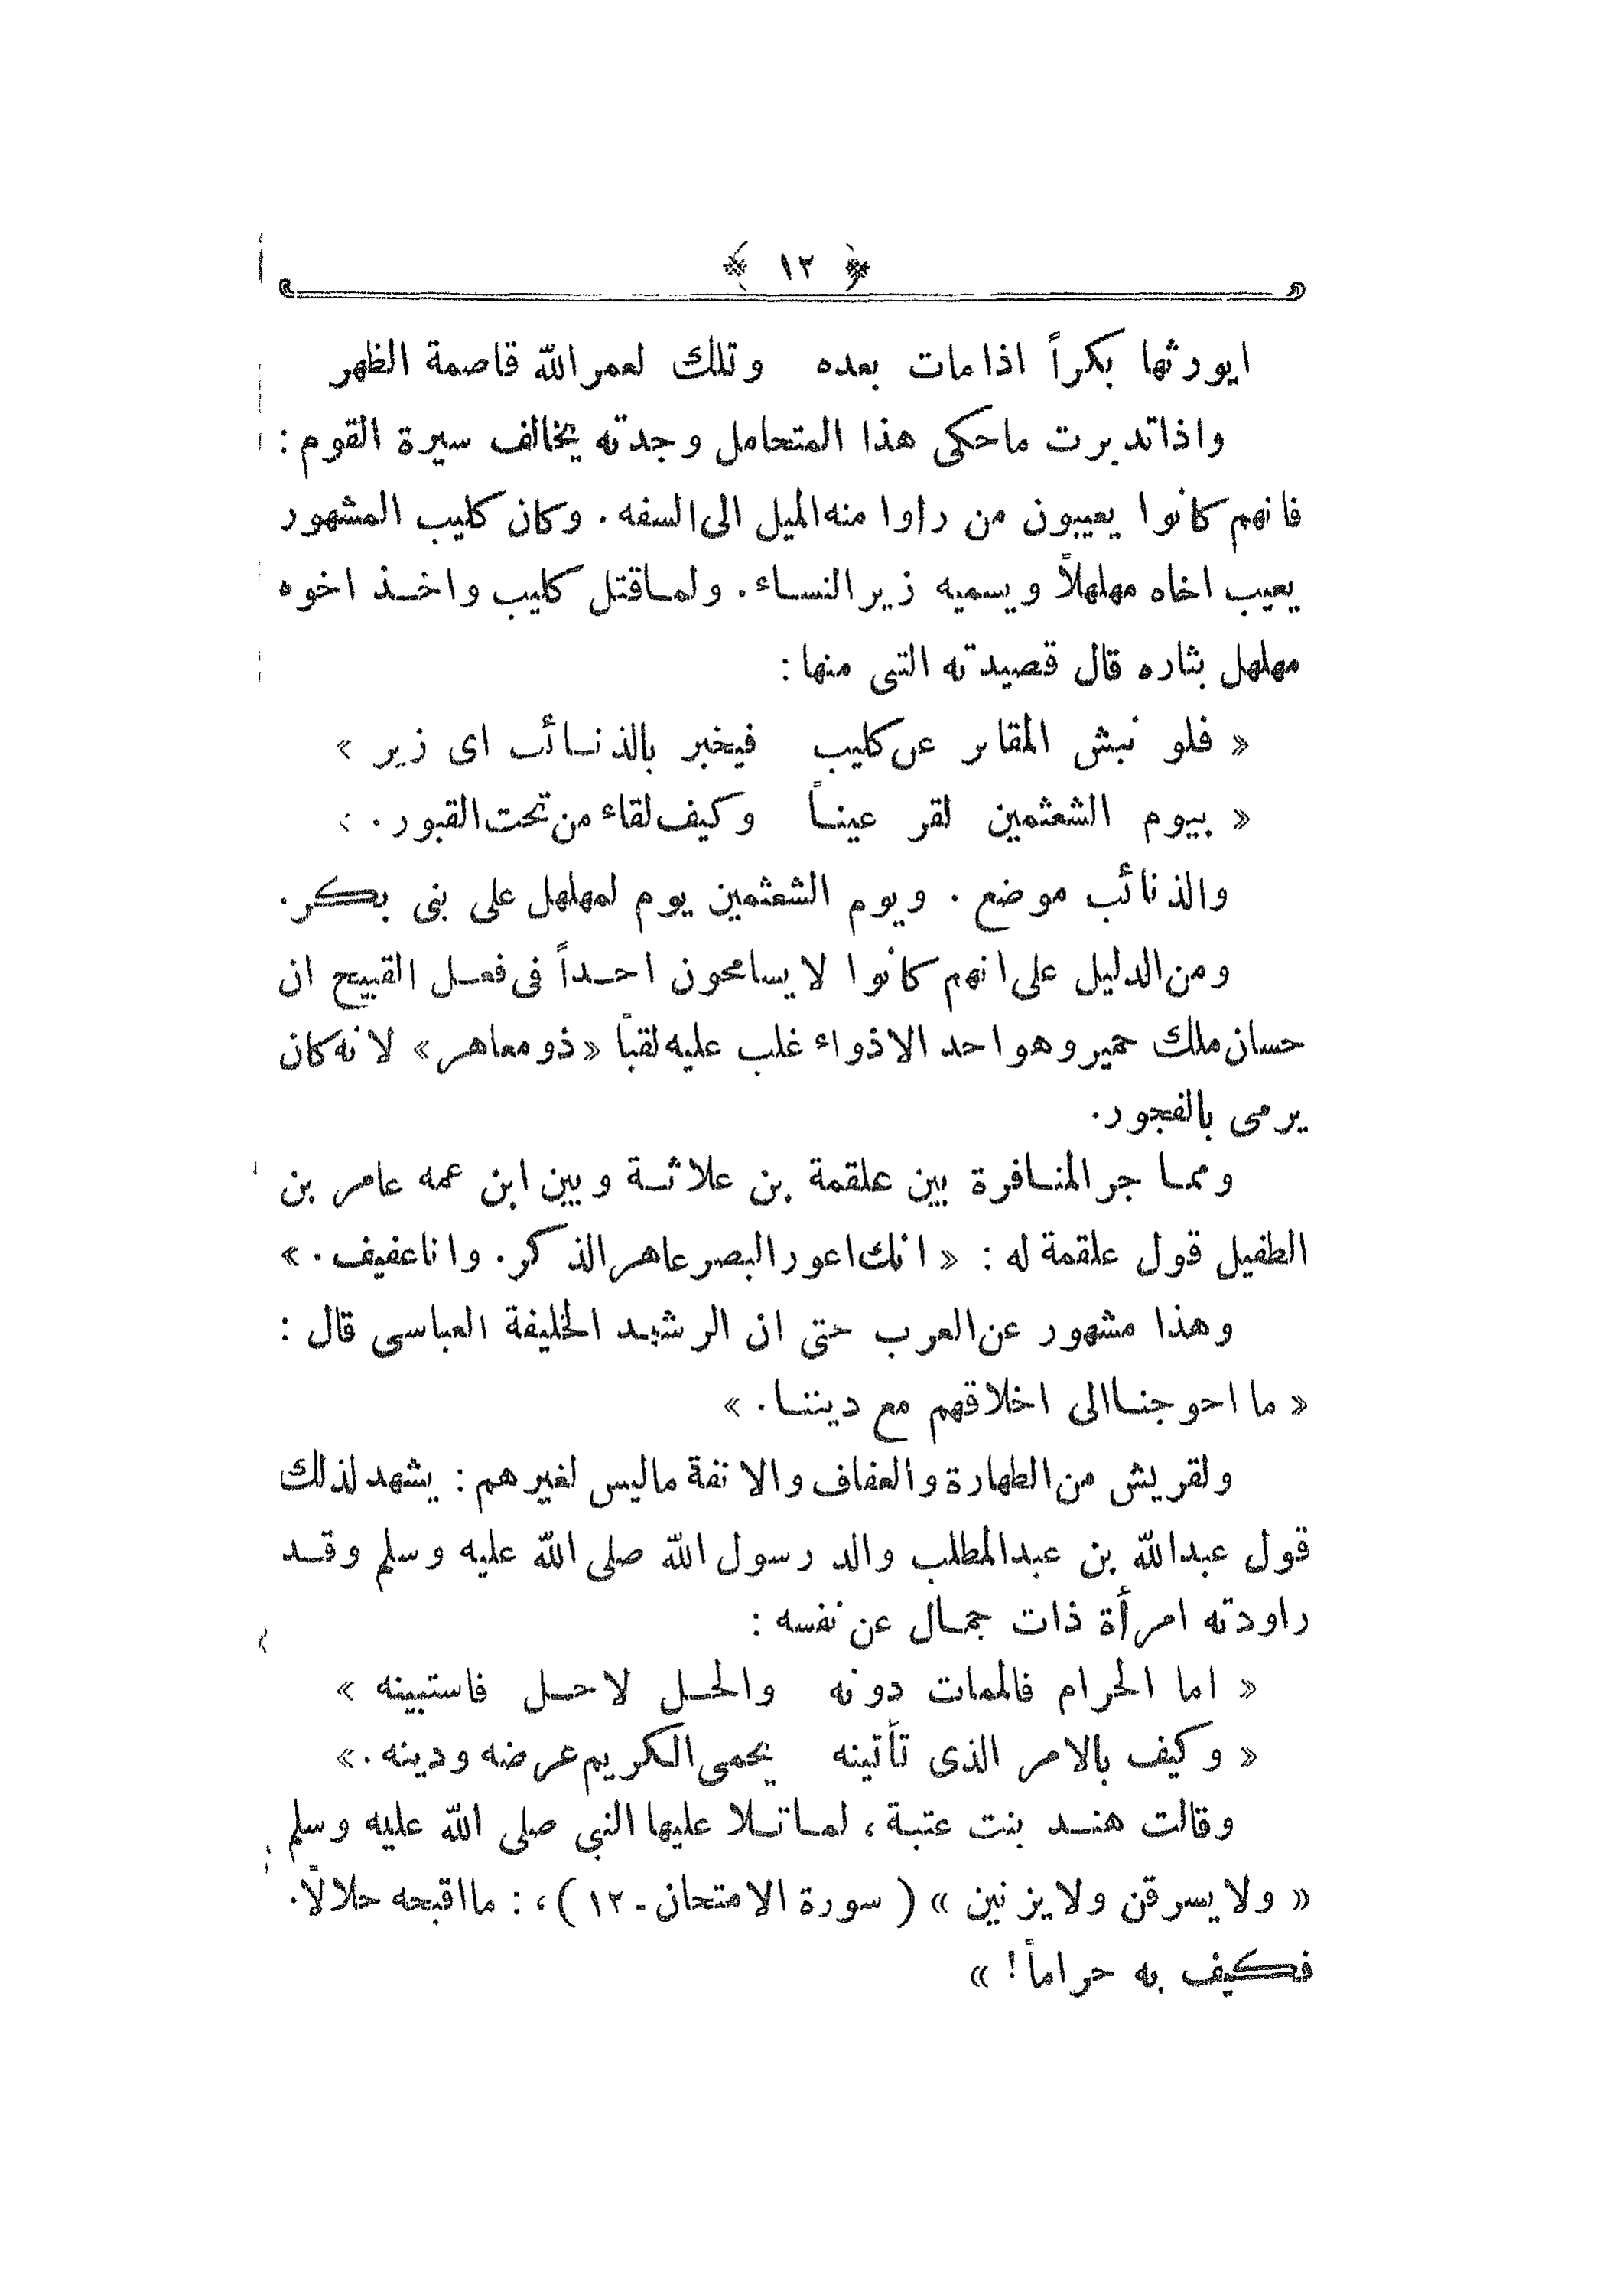 ﴿ ١٢ ﴾
ايورثها بكراً اذا مات بعده وتلك لعمر الله قاصمة الظهر
واذا تدبرت ما حكى هذا المتحامل وجدته يخالف سيرة القوم :
فانهم كانوا يعيبون من راوا منه الميل الى السفه . وكان كليب المشهور
يعيب اخاه مهلهلاً ويسميه زير النساء . ولما قتل كليب واخذ اخوه
مهلهل بثاره قال قصيدته التى منها :
« فلو نبش المقابر عن كليب فيخبر بالذنائب اى زير »
« بيوم الشعثمين لقر عيناً وكيف لقاء من تحت القبور . »
والذنائب موضع . ويوم الشعثمين يوم لمهلهل على بنى بكر .
ومن الدليل على انهم كانوا لا يسامحون احداً فى فعل القبيح ان
حسان ملك حمير وهو احد الاذواء غلب عليه لقباً « ذو معاهر » لانه كان
يرمى بالفجور .
ومما جر المنافرة بين علقمة بن علاثة وبين ابن عمه عامر بن
الطفيل قول علقمة له : « انك اعور البصر عاهر الذكر . وانا عفيف . »
وهذا مشهور عن العرب حتى ان الرشيد الخليفة العباسى قال :
« ما احوجنا الى اخلاقهم مع ديننا . »
ولقريش من الطهارة والعفاف والانفة ما ليس لغيرهم : يشهد لذلك
قول عبد الله بن عبد المطلب والد رسول الله صلى الله عليه وسلم وقد
راودته امرأة ذات جمال عن نفسه :
« اما الحرام فالممات دونه والحل لا حل فاستبينه »
« وكيف بالامر الذى تأتينه يحمى الكريم عرضه ودينه . »
وقالت هند بنت عتبة ، لما تلا عليها النبي صلى الله عليه وسلم
« ولا يسرقن ولا يزنين » ( سورة الامتحان - ١٢ ) ، : ما اقبحه حلالاً .
فكيف به حراماً ! »